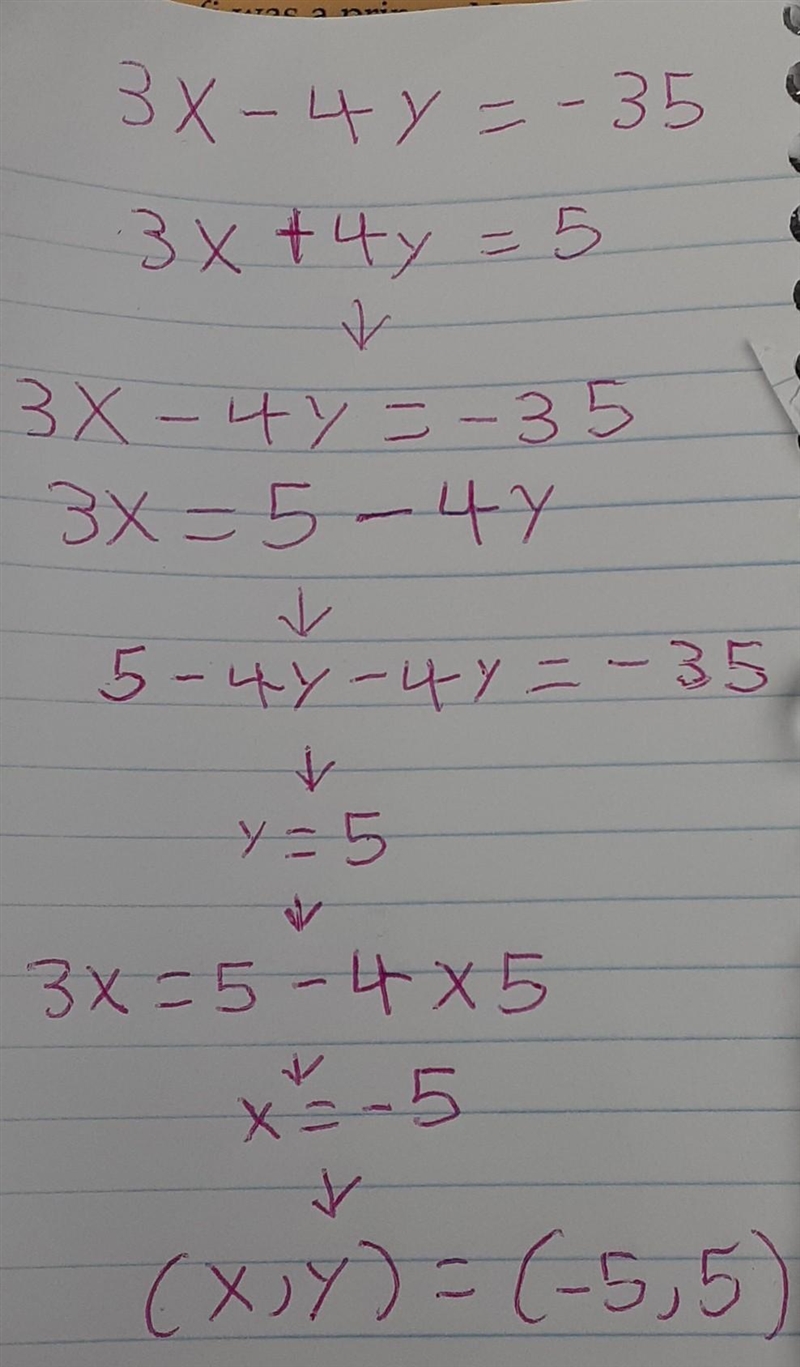 was a
3x - 4y = -35
3x + 4y = 5
↓
3x - 4y = -35
3x = 5 - 4y
↓
5 - 4y - 4y = -35
↓
y = 5
↓
3x = 5 - 4 × 5
↓
x = -5
↓
(x, y) = (-5, 5)